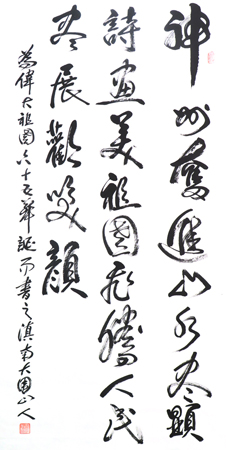 神州奮進山水盡顯
詩畫美祖國飛騰人民
盡展歡笑顏
為偉大祖國六十五華誕而書之滇南大圍山人